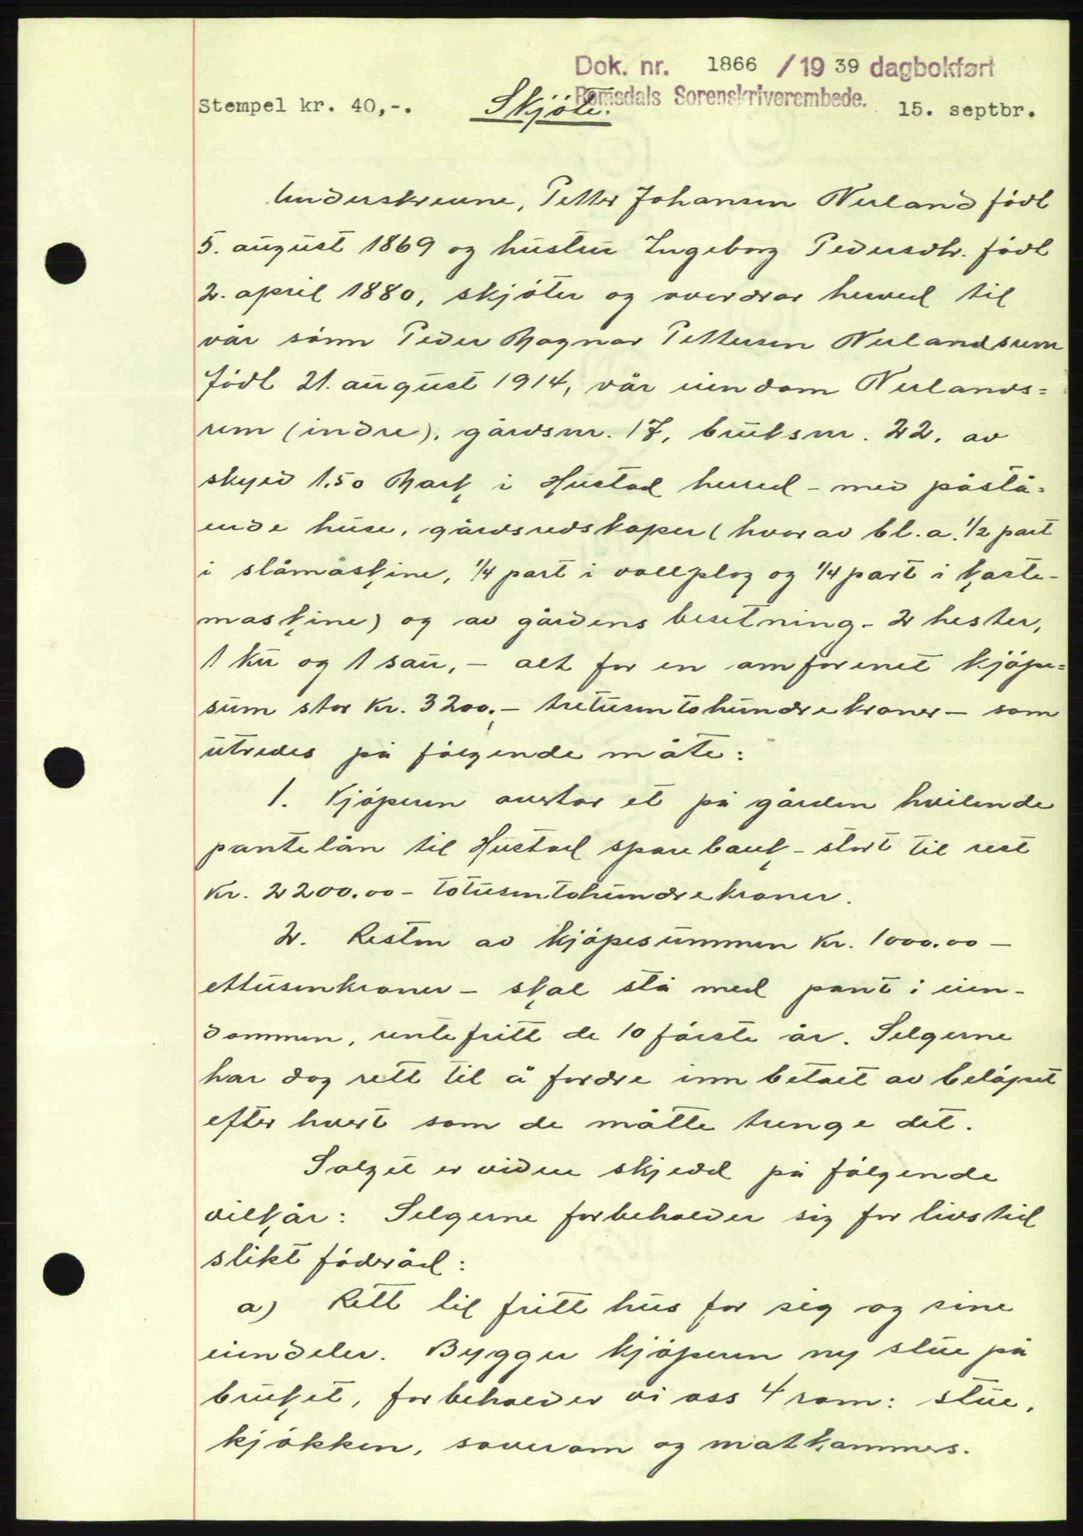 Dok. nr. 1866 / 19 39 dagbokført
Romsdals Sorenskriverembede.
Stempel kr. 40,-. Skjöte. 15. septbr.
Underskrevne, Petter Johansen Nerland födt
5. august 1869 og hustru Ingeborg Pedersdtr. födt
2. april 1880, skjöter og overdrar herved til
vår sönn Peder Magnar Pettersen Nerlandsrem
födt 21. august 1914, vår eiendom Nerlands=
rem (indre), gårdsnr. 17, bruksnr. 22, av
skyld 1.50 Mark i Hustad herred - med påstå=
ende huse, gårdsredskaper (hvorav bl. a. 1/2 part
i slåmaskine, 1/4 part i vollplog og 1/4 part i kaste-
maskine) og av gårdens besetning - 2 hester,
1 ku og 1 sau, - alt for en omforenet kjöpe=
sum stor kr. 3200,- tretusentohundrekroner - som
utredes på fölgende måte:
1. Kjöperen overtar et på gården hvilende
pantelån til Hustad sparebank - stort til rest
kr. 2200.00 - totusentohundrekroner.
2. Resten av kjöpesummen kr. 1000.00 -
ettusenkroner - skal stå med pant i eien-
dommen, rentefritt de 10 förste år. Selgerne
har dog rett til å fordre innbetalt av belöpet
efter hvert som de måtte trenge det.
Salget er videre skjedd på fölgende
vilkår: Selgerne forbeholder sig for livstid
slikt föderåd:
a) Rett til fritt hus for sig og sine
eiendeler. Bygger kjöperen ny stue på
bruket, forbeholder vi oss 4 rom: stue,
kjökken, soverom og matkammers.